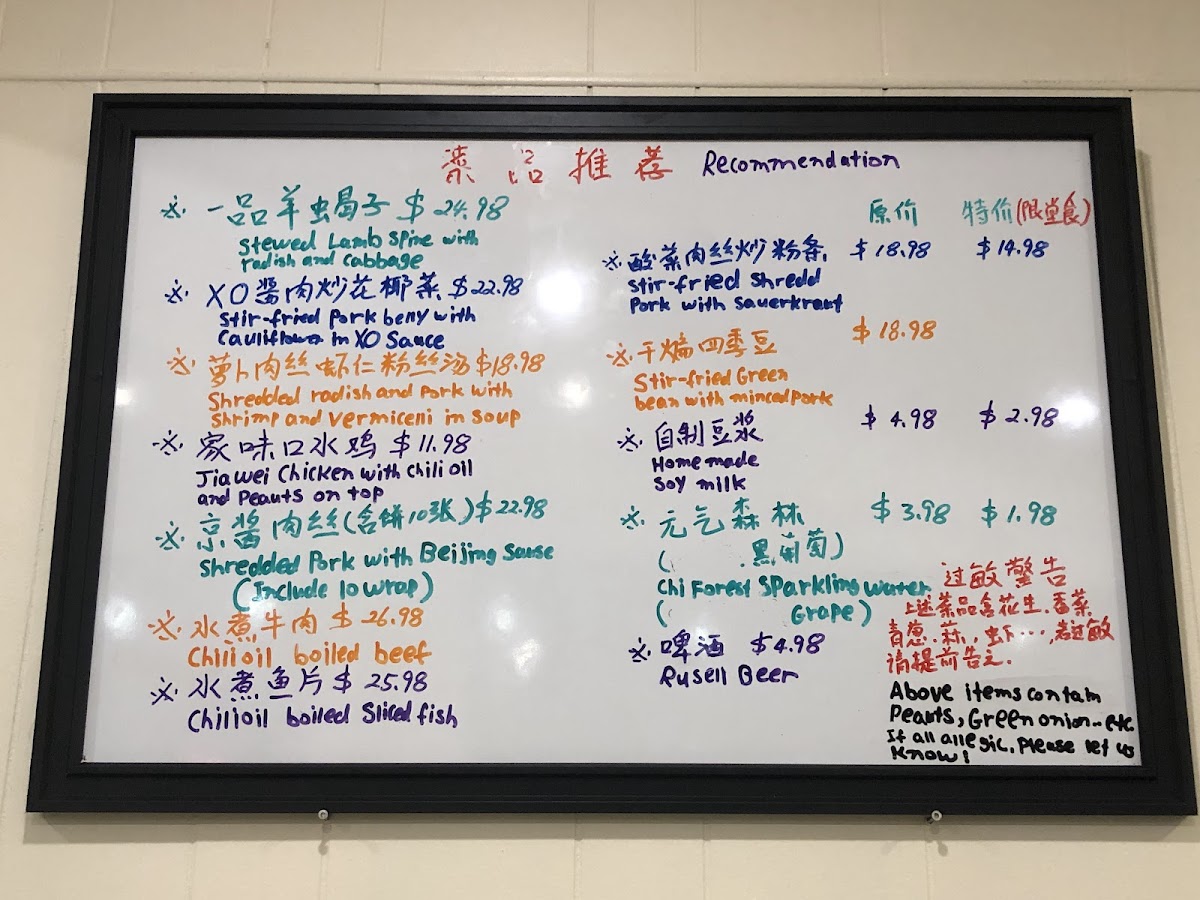 菜品推荐 Recommendation
※ 一品羊虫蝎子 $24.98
Stewed Lamb Spine with
radish and Cabbage
※ XO酱肉炒花椰菜 $22.98
Stir-fried Pork belly with
Cauliflower in XO Sauce
※ 萝卜肉丝虾仁粉丝汤 $18.98
Shredded radish and Pork with
Shrimp and Vermicelli in Soup
※ 家味口水鸡 $11.98
Jiawei Chicken with Chili oil
and Peauts on top
※ 京酱肉丝(含饼10张) $22.98
Shredded Pork with Beijing Sause
(Include 10 wrap)
※ 水煮牛肉 $26.98
Chilioil boiled beef
※ 水煮鱼片 $25.98
Chilioil boiled Sliced fish
原价 特价(限堂食)
※ 酸菜肉丝炒粉条 $18.98 $14.98
Stir-fried Shredd
Pork with Sauerkraut
※ 干煸四季豆 $18.98
Stir-fried Green
bean with minced Pork
※ 自制豆浆 $4.98 $2.98
Home made
Soy milk
※ 元气森林 $3.98 $1.98
( 黑葡萄)
Chi Forest Sparkling Water
( Grape)
※ 啤酒 $4.98
Rusell Beer
过敏警告
上述菜品含花生.香菜
青葱.蒜,虾…,若过敏
请提前告之.
Above items contain
Peauts, Green onion... etc.
If all allegic, Please let us
know!